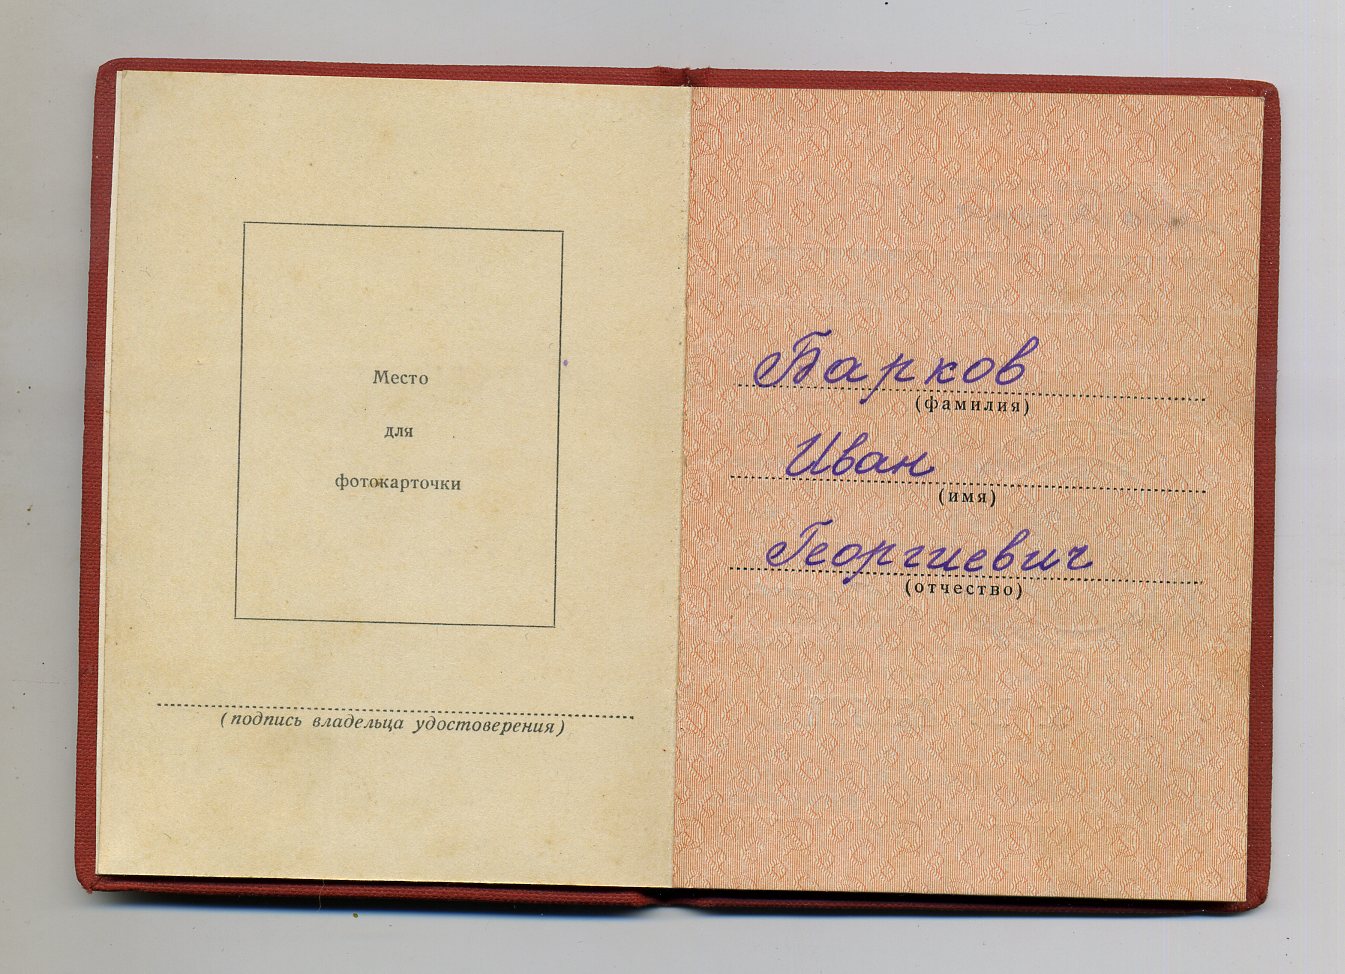 Место
для
фотокарточки
(подпись владельца удостоверения)
Барков
(фамилия)
Иван
(имя)
Георгиевич
(отчество)